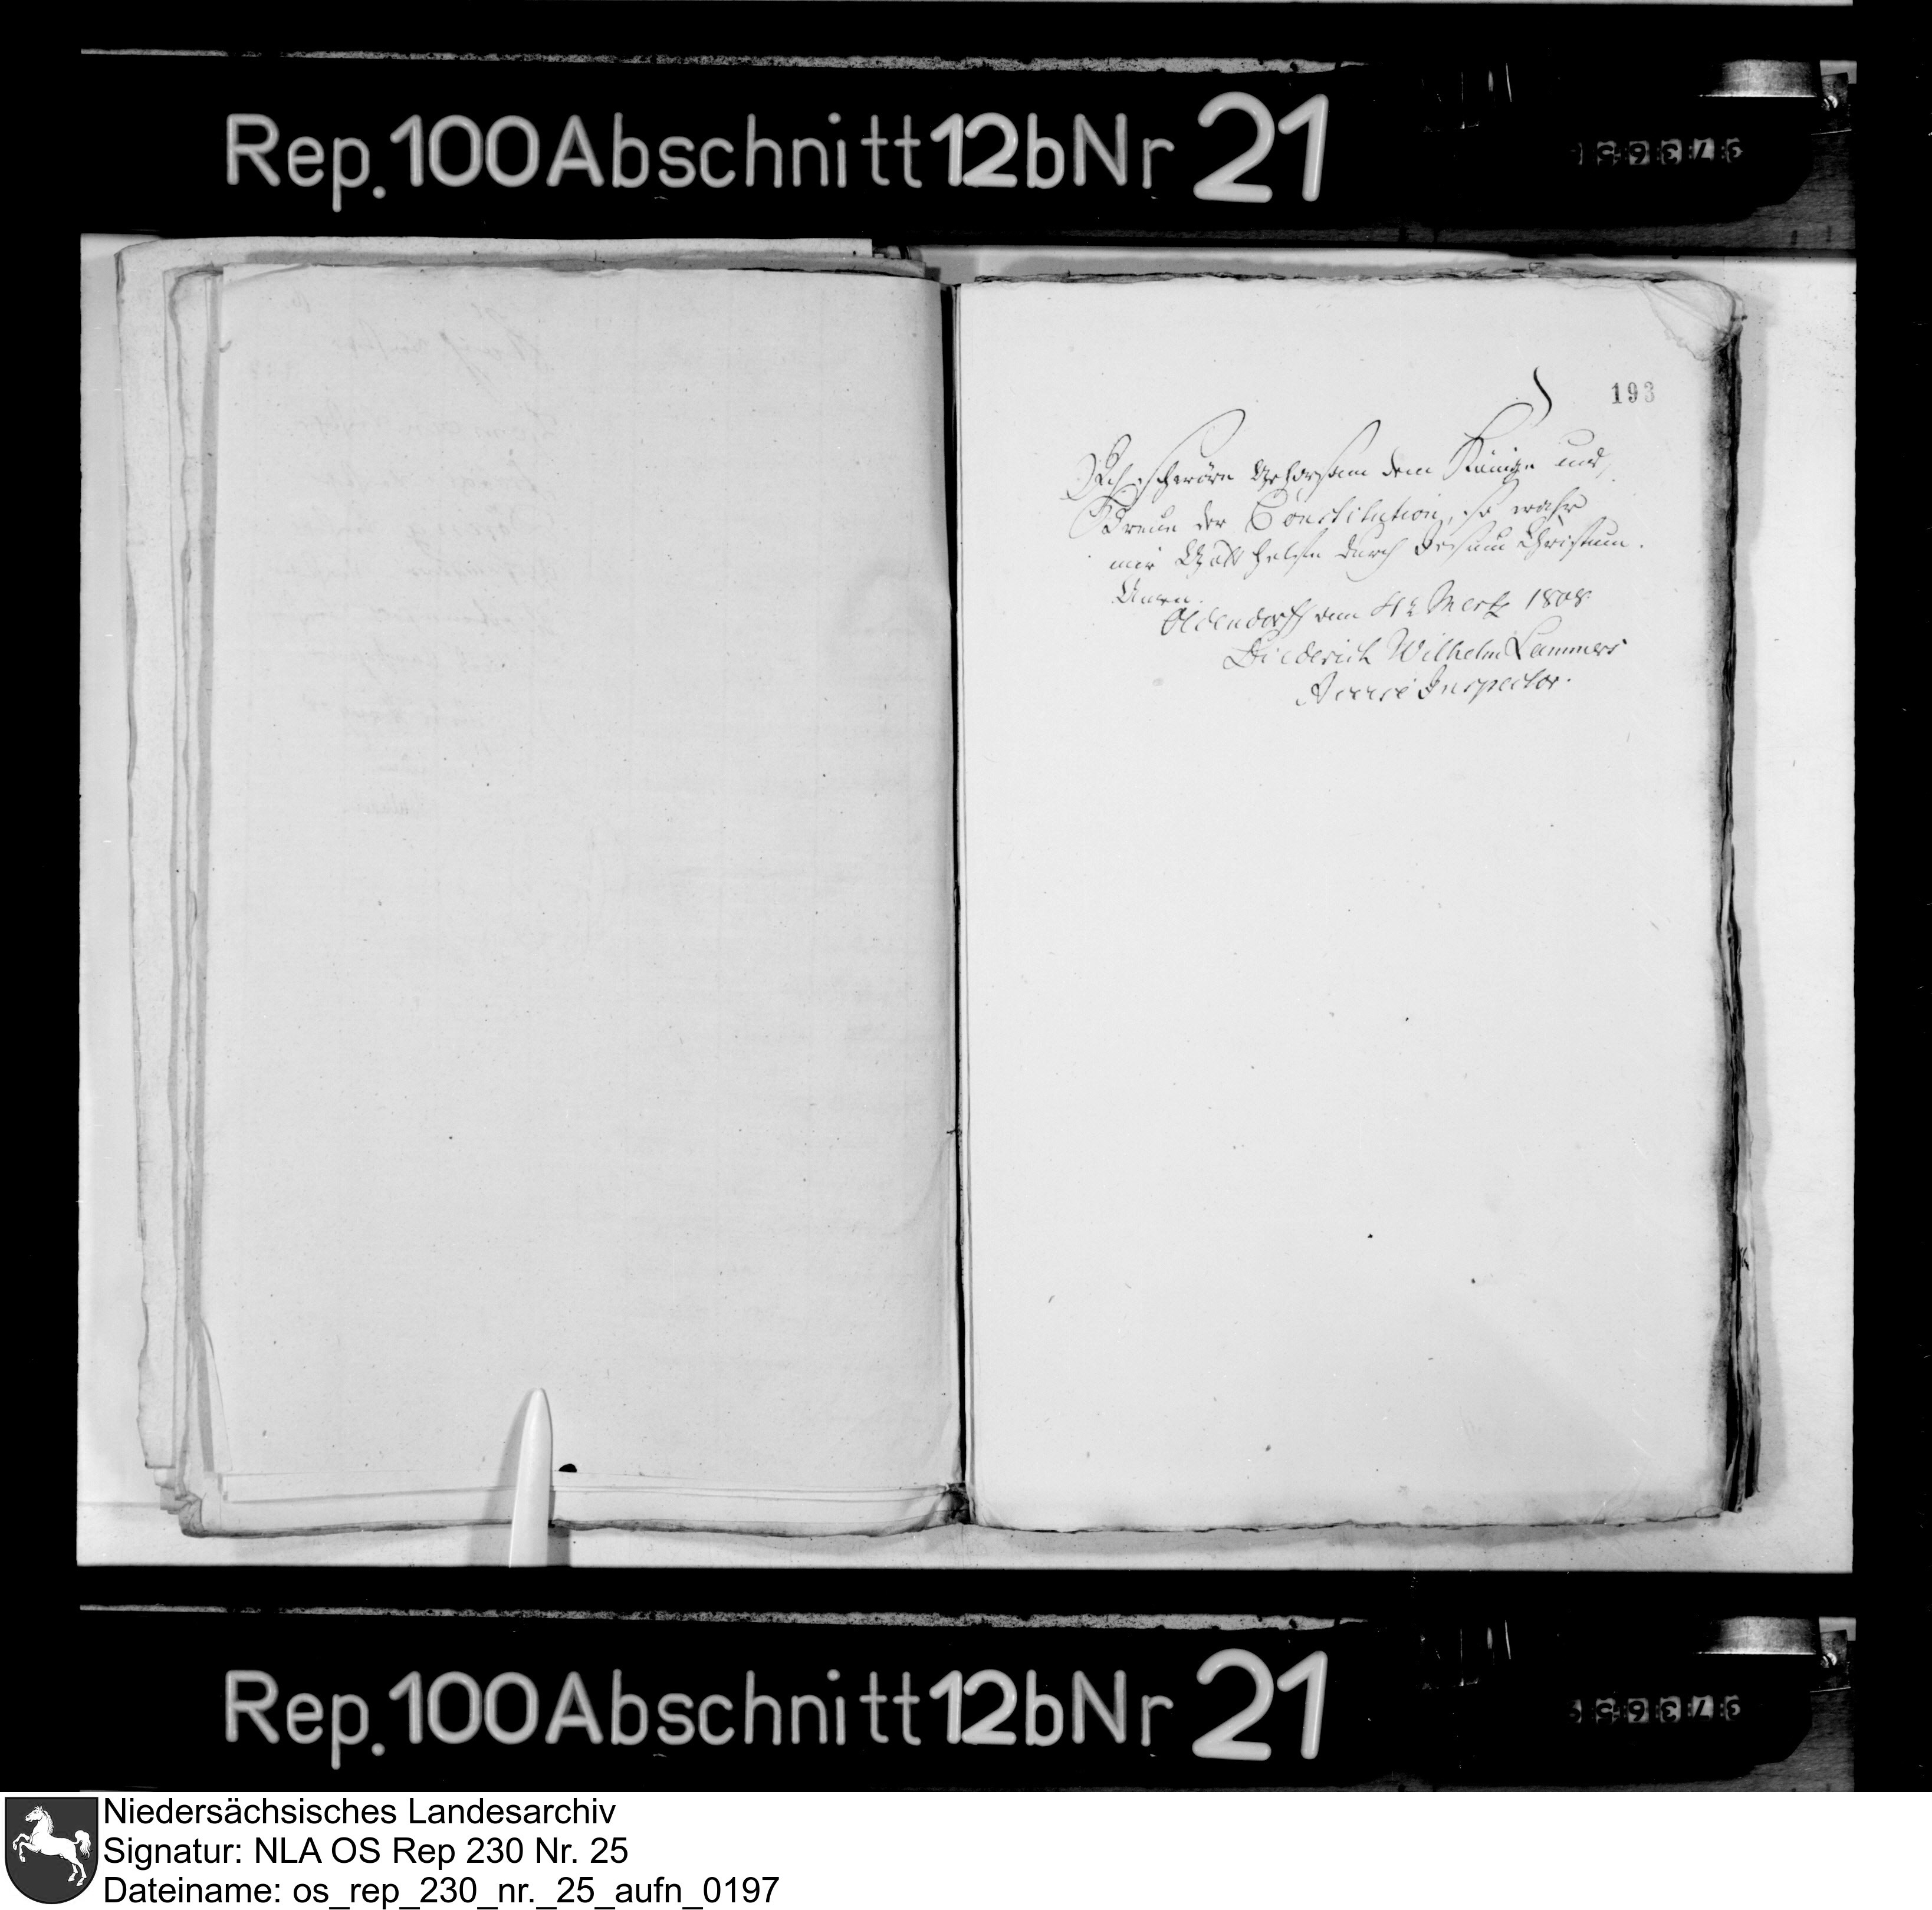 Rep. 100 Abschnitt 12b Nr 21
193
Ich schwöre Gehorsam dem Könige und
Treue der Constitution, so wahr
mir Gott helfe durch Jesum Christum.
Amen.
Oldendorff den Mertz 1808
Diederich Wilhelm Lammers
Accise Inspector.
Rep. 100 Abschnitt 12b Nr 21
Niedersächsisches Landesarchiv
Signatur: NLA OS Rep 230 Nr. 25
Dateiname: os_rep_230_nr._25_aufn_0197